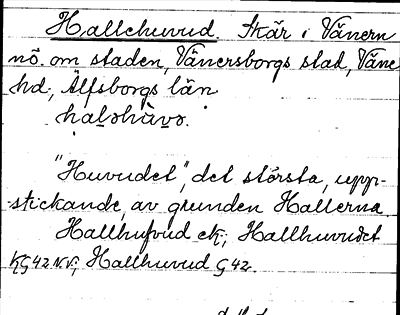 Hallehuvud. Skär i Vänern
nö. om staden, Vänersborgs stad, Väne
hd, Älfsborgs län
"Huvudet", det största, upp-
stickande, av grunden Hallerna
Hallhufvud ek; Hallhuvudet
KG42 NV; Hallhuvud G42.